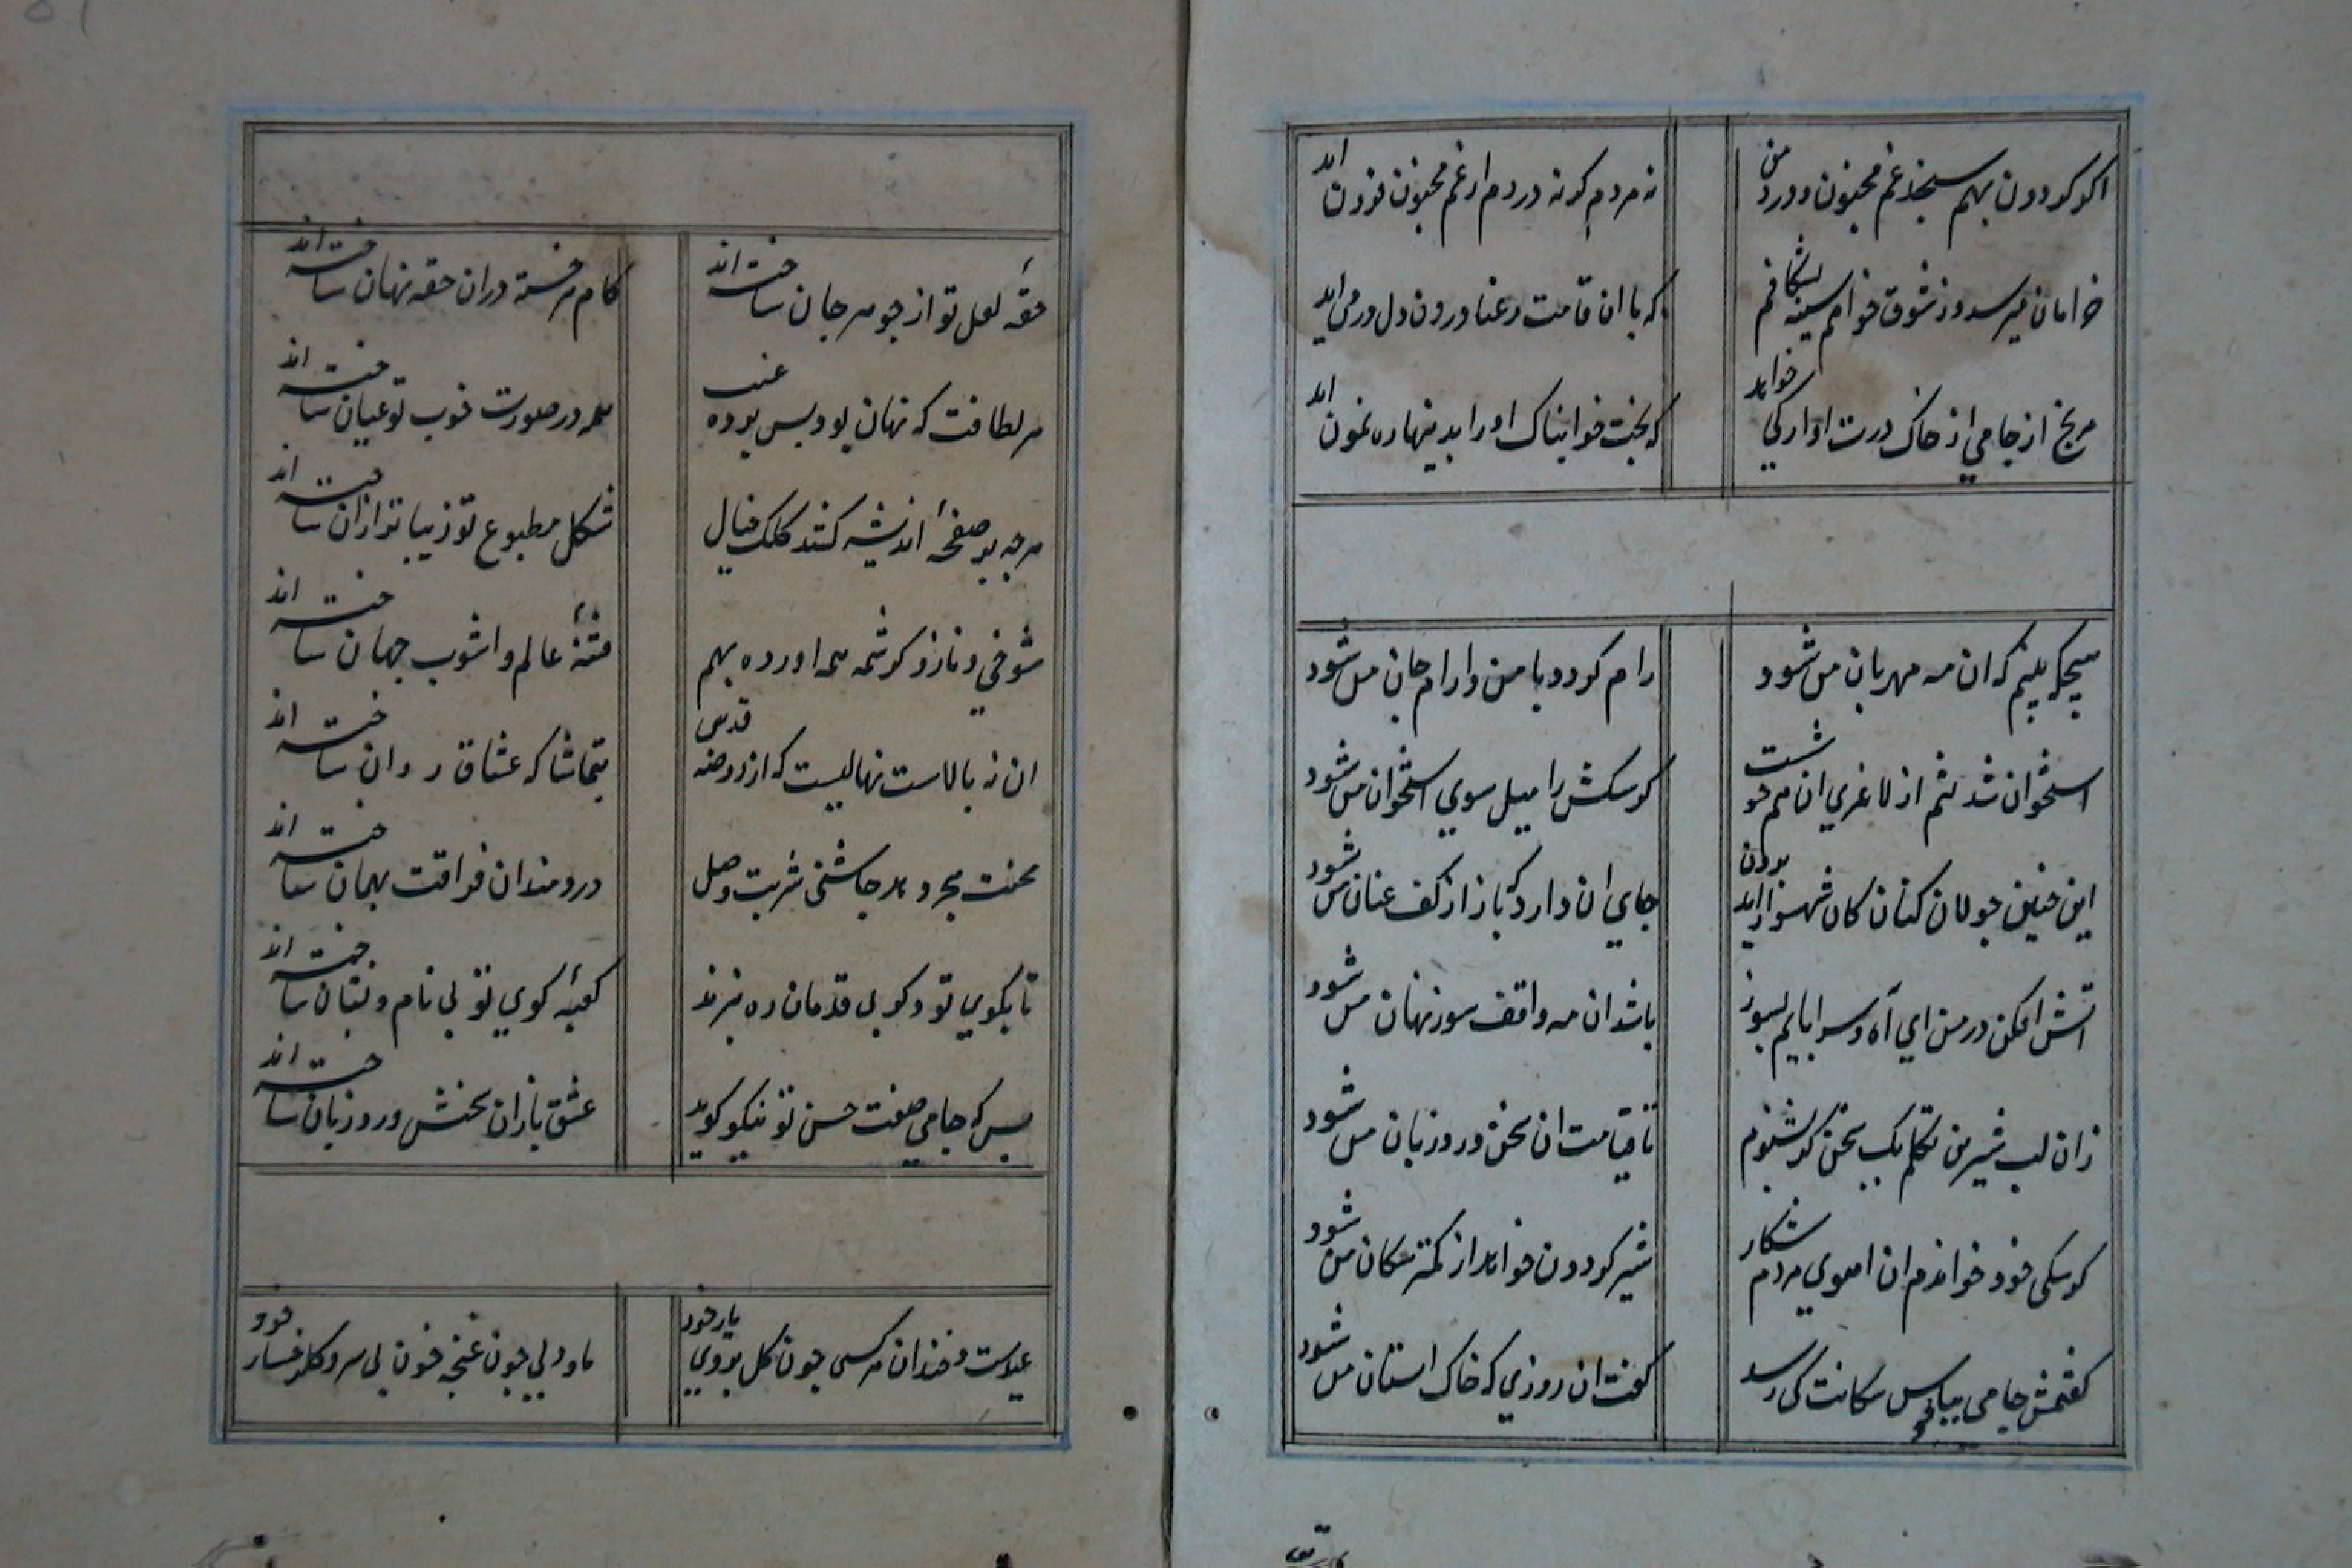 اکر کردون بهم سنجد غم مجنون و درد من
نه مردم کر نه دردم از غم مجنون فزون اید
خرامان میرسد وز شوق خواهم سینه بشکافم
که با ان قامت رعنا درون دل درمی اید
مرنج از جامی از خاک درت اوارکی خواهد
که بخت خوابناک او را بدینها ره نمون اید
هیچکه بینم که ان مه مهربان من شود
رام کردد با من و ارام جان من شود
استخوان شد تنم از لاغری ان هم خوشت
کر سکش را میل سوی استخوان من شود
این جنین جولان کنان کان شهسوار اید برون
جای ان دارد که باز از کف عنان من شود
اتش افکن در من ای آه و سراپایم بسوز
باشد ان مه واقف سوز نهان من شود
زان لب شیرین تکلم یک سخن کر بشنوم
تا قیامت ان سخن ورد زبان من شود
کر سکی خود خواندم ان اهوی مردم شکار
شیر کردون خواهد از کمتر سکان من شود
کفتمش جامی بپابوس سکانت کی رسد
کفت ان روزی که خاک استان من شود
حقهٔ لعل تو از جوهر جان ساخته اند
کام هر خسته دران حقه نهان ساخته اند
هر لطافت که نهان بود پس پردهٔ غیب
همه در صورت خوب تو عیان ساخته اند
هرجه بر صفحهٔ اندیشه کشد کلک خیال
شکل مطبوع تو زیباتر ازان ساخته اند
شوخی و ناز و کرشمه همه اورده بهم
فتنهٔ عالم و اشوب جهان ساخته اند
ان نه بالاست نهالیست که از روضه قدس
بتماشاکه عشاق روان ساخته اند
محنت هجر و بد جاشنی شربت وصل
دردمندان فراقت بهمان ساخته اند
تا بکوی تو دکر بی قدمان ره نبرند
کعبهٔ کوی تو بی نام و نشان ساخته اند
بس که جامی صفت حسن تو نیکو کوید
عشق بازان سخنش ورد زبان ساخته اند
عیدست و خندان هر کسی جون کل بروی یار خود
ما و دلی جون غنچه خون بی سرو کلرخسار خود